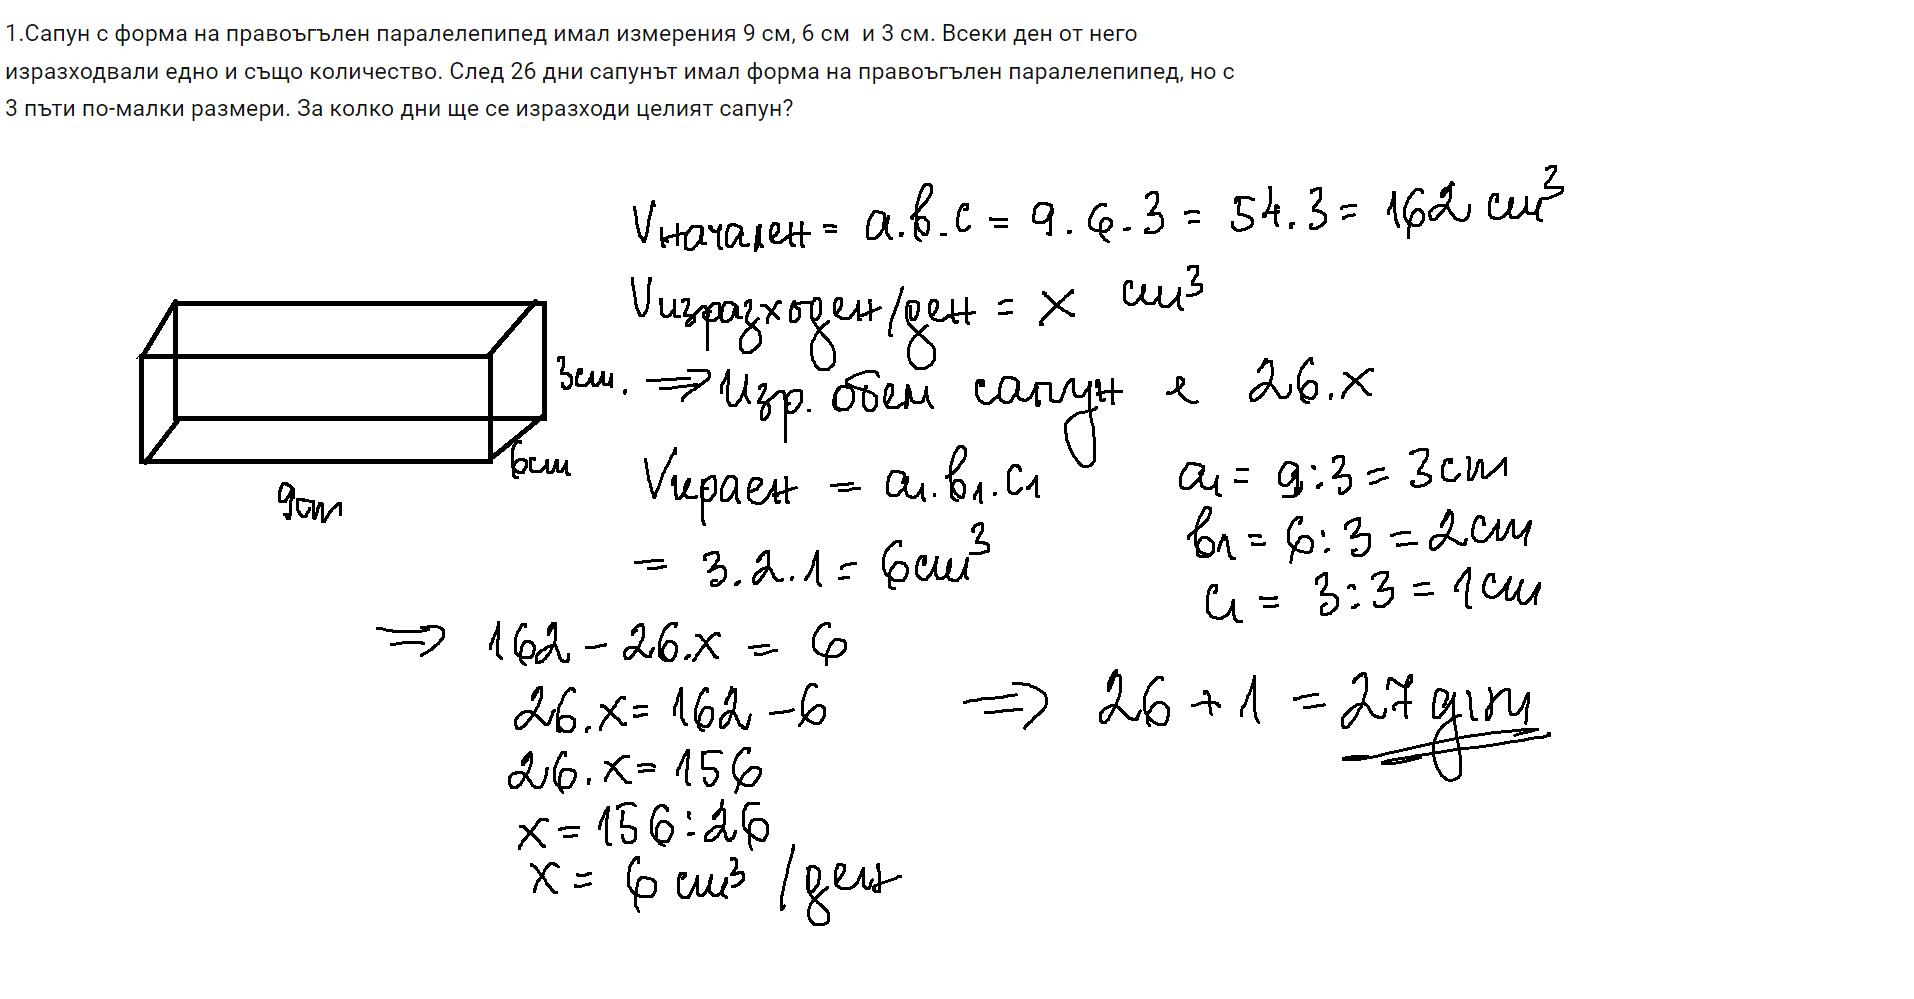 1.Сапун с форма на правоъгълен паралелепипед имал измерения 9 см, 6 см и 3 см. Всеки ден от него
изразходвали едно и също количество. След 26 дни сапунът имал форма на правоъгълен паралелепипед, но с
3 пъти по-малки размери. За колко дни ще се изразходи целият сапун?
Vначален = a.b.c = 9.6.3 = 54.3 = 162 cm³
Vизразходен/ден = x cm³
3cm.
⇒ Изр. обем сапун е 26.x
6cm
9cm
Vкраен = a₁.b₁.c₁
= 3.2.1 = 6cm³
a₁ = 9:3 = 3cm
b₁ = 6:3 = 2cm
c₁ = 3:3 = 1cm
⇒ 162 - 26.x = 6
26.x = 162 - 6
26.x = 156
x = 156:26
x = 6 cm³ /ден
⇒ 26 + 1 = 27 дни